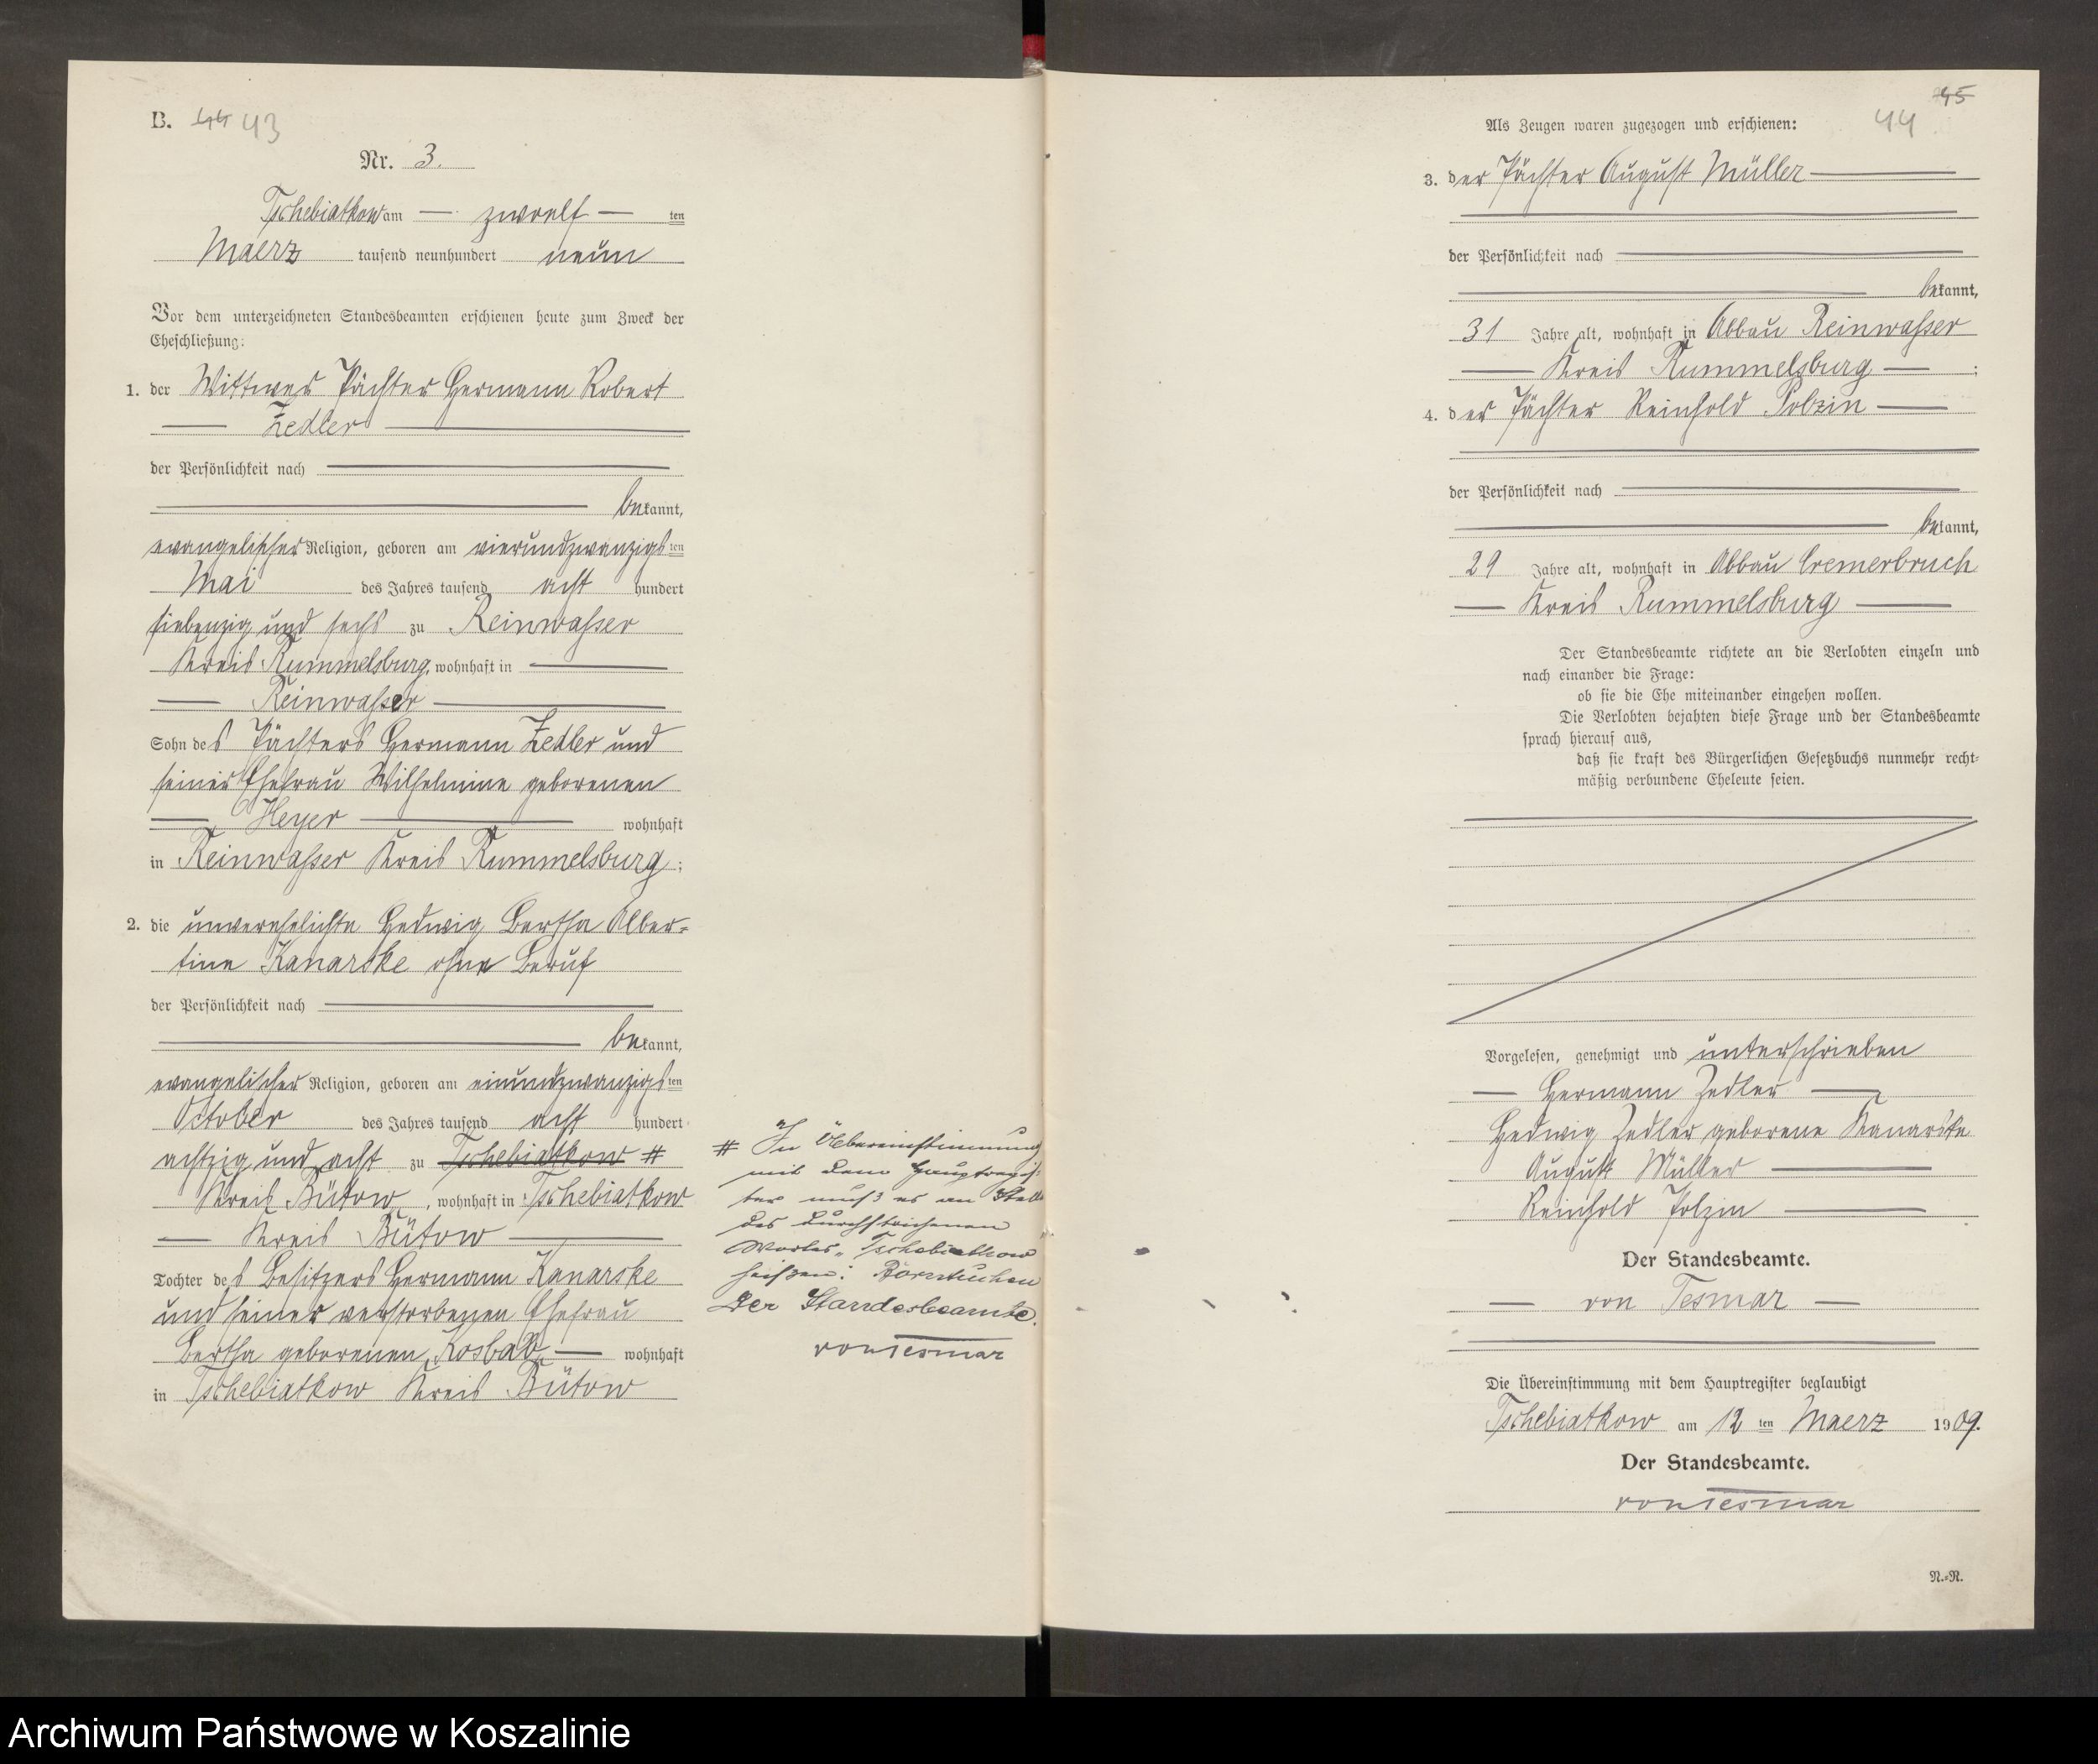 B. 44 43
Nr. 3.
Tschebiatkow am — zwoelf — ten
Maerz tausend neunhundert neun
Vor dem unterzeichneten Standesbeamten erschienen heute zum Zweck der
Eheschließung:
1. der Wittwer Pächter Hermann Robert
— Zedler —
der Persönlichkeit nach —
— bekannt,
evangelischer Religion, geboren am vierundzwanzigsten
Mai des Jahres tausend acht hundert
siebenzig und sechs zu Reinwasser
Kreis Rummelsburg, wohnhaft in —
— Reinwasser —
Sohn des Pächters Hermann Zedler und
seiner Ehefrau Wilhelmine geborenen
— Heyer — wohnhaft
in Reinwasser Kreis Rummelsburg;
2. die unverehelichte Hedwig Bertha Alber-
tine Kanarske ohne Beruf
der Persönlichkeit nach —
— bekannt,
evangelischer Religion, geboren am einundzwanzigsten
October des Jahres tausend acht hundert
achtzig und acht zu Tschebiatkow #
Kreis Bütow, wohnhaft in Tschebiatkow
— Kreis Bütow —
Tochter des Besitzers Hermann Kanarske
und seiner verstorbenen Ehefrau
Bertha geborenen Kosbab — wohnhaft
in Tschebiatkow Kreis Bütow
# In Übereinstimmung
mit dem Hauptregis-
ter muß es an Stelle
des durchstrichenen
Wortes „Tschebiatkow"
heißen: Borntuchen
Der Standesbeamte.
von Tesmar
45
44
Als Zeugen waren zugezogen und erschienen:
3. der Pächter August Müller —
der Persönlichkeit nach —
— bekannt,
31 Jahre alt, wohnhaft in Abbau Reinwasser
— Kreis Rummelsburg — ;
4. der Pächter Reinhold Polzin —
der Persönlichkeit nach —
— bekannt,
29 Jahre alt, wohnhaft in Abbau Cremerbruch
— Kreis Rummelsburg —
Der Standesbeamte richtete an die Verlobten einzeln und
nach einander die Frage:
ob sie die Ehe miteinander eingehen wollen.
Die Verlobten bejahten diese Frage und der Standesbeamte
sprach hierauf aus,
daß sie kraft des Bürgerlichen Gesetzbuchs nunmehr recht-
mäßig verbundene Eheleute seien.
Vorgelesen, genehmigt und unterschrieben
— Hermann Zedler —
Hedwig Zedler geborene Kanarske
August Müller —
Reinhold Polzin —
Der Standesbeamte.
— von Tesmar —
Die Übereinstimmung mit dem Hauptregister beglaubigt
Tschebiatkow am 12 ten Maerz 1909.
Der Standesbeamte.
von Tesmar
N.-R.
Archiwum Państwowe w Koszalinie